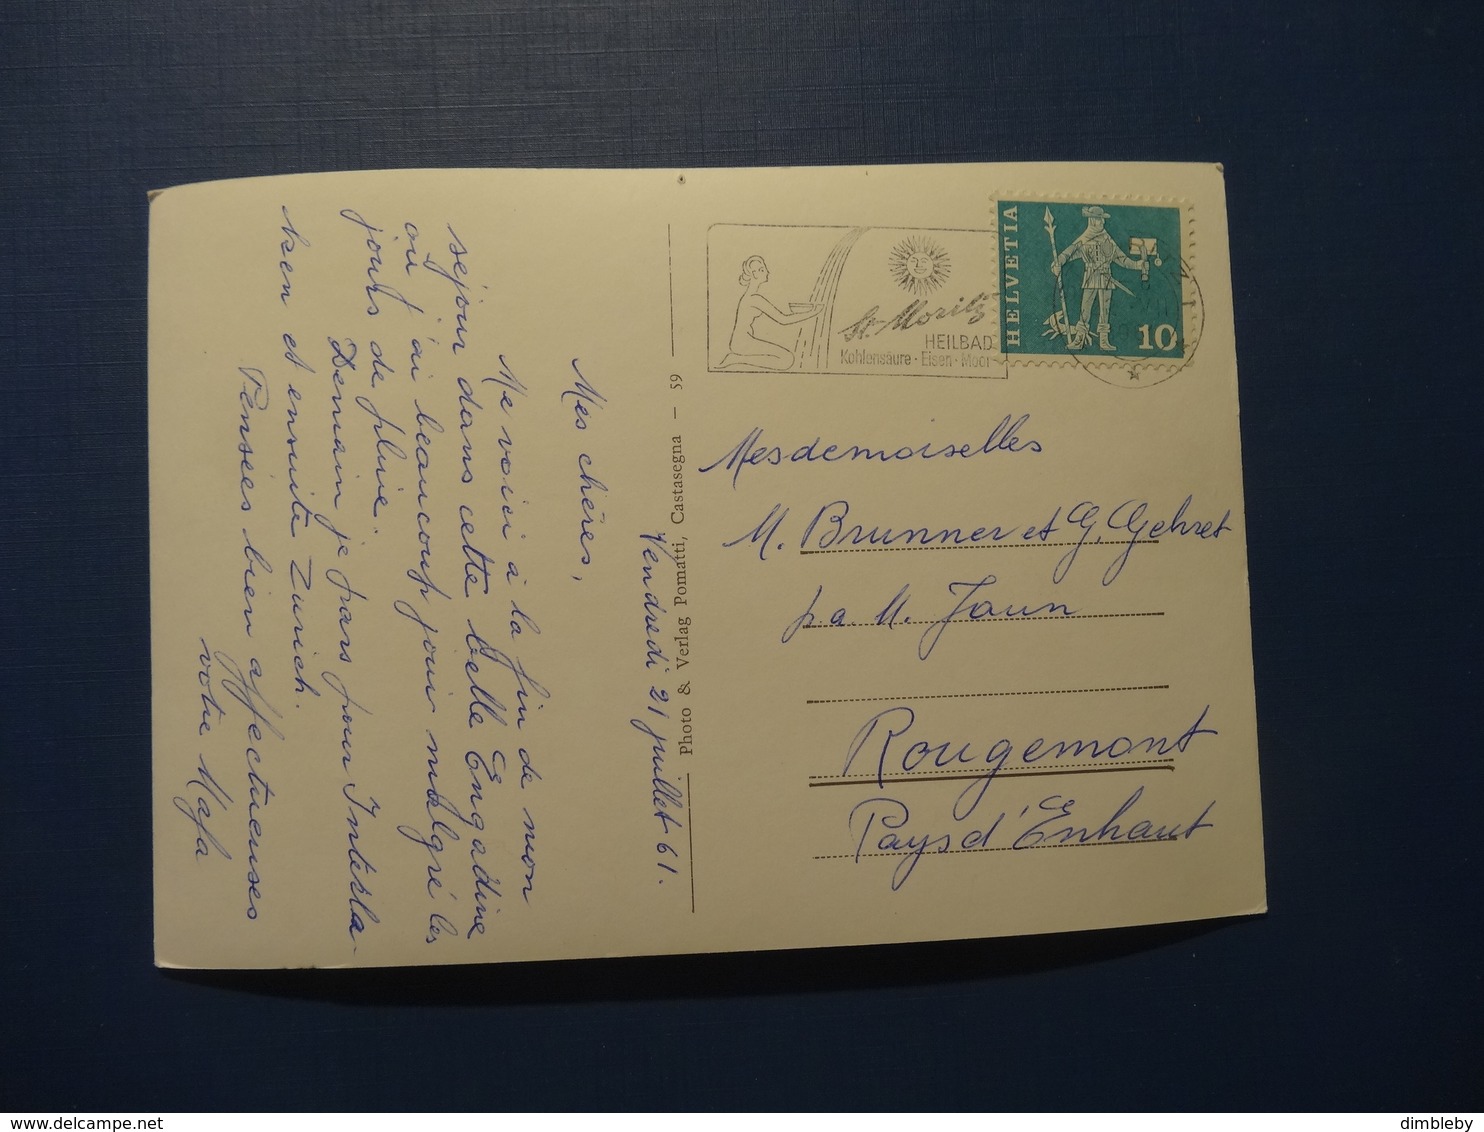 Vendredi 21 juillet 61.
Mes chères,
Me voici à la fin de mon
séjour dans cette belle Engadine
où j'ai beaucoup joui malgré les
jours de pluie.
Demain je pars pour Interla-
ken et ensuite Zurich.
Pensées bien affectueuses
votre Mafa
Photo & Verlag Pomatti, Castasegna — 59
St. Moritz
HEILBAD
Kohlensäure · Eisen · Moor
HELVETIA
10
Mesdemoiselles
M. Brunner et G. Gehret
p.a. M. Jaun
Rougemont
Pays d'Enhaut
dimbleby
delcampe.net